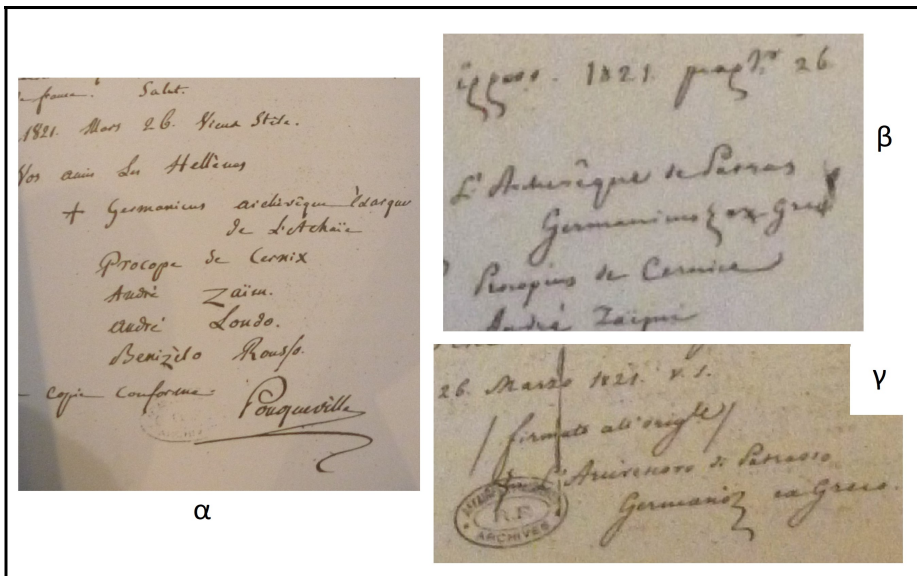 france. Salut.
1821. Mars 26. Vieux Stile.
Vos amis Les Hellènes
+ Germanicus archevêque Exarque
de L'Achaïe
Procope de Cernix
André Zaïm.
André Londo.
Benizèlo Rousso.
copie conforme
Pouqueville
α
1821. 26
L'Archevêque de Patras
Germanims ex Grec
Procopius de Cernice
André Zaïmi
β
26. Marzo 1821. v. s.
/ firmato all'origle /
L'Arcivescovo di Patrasso
Germanio ex Greco.
R.F.
ARCHIVES
γ